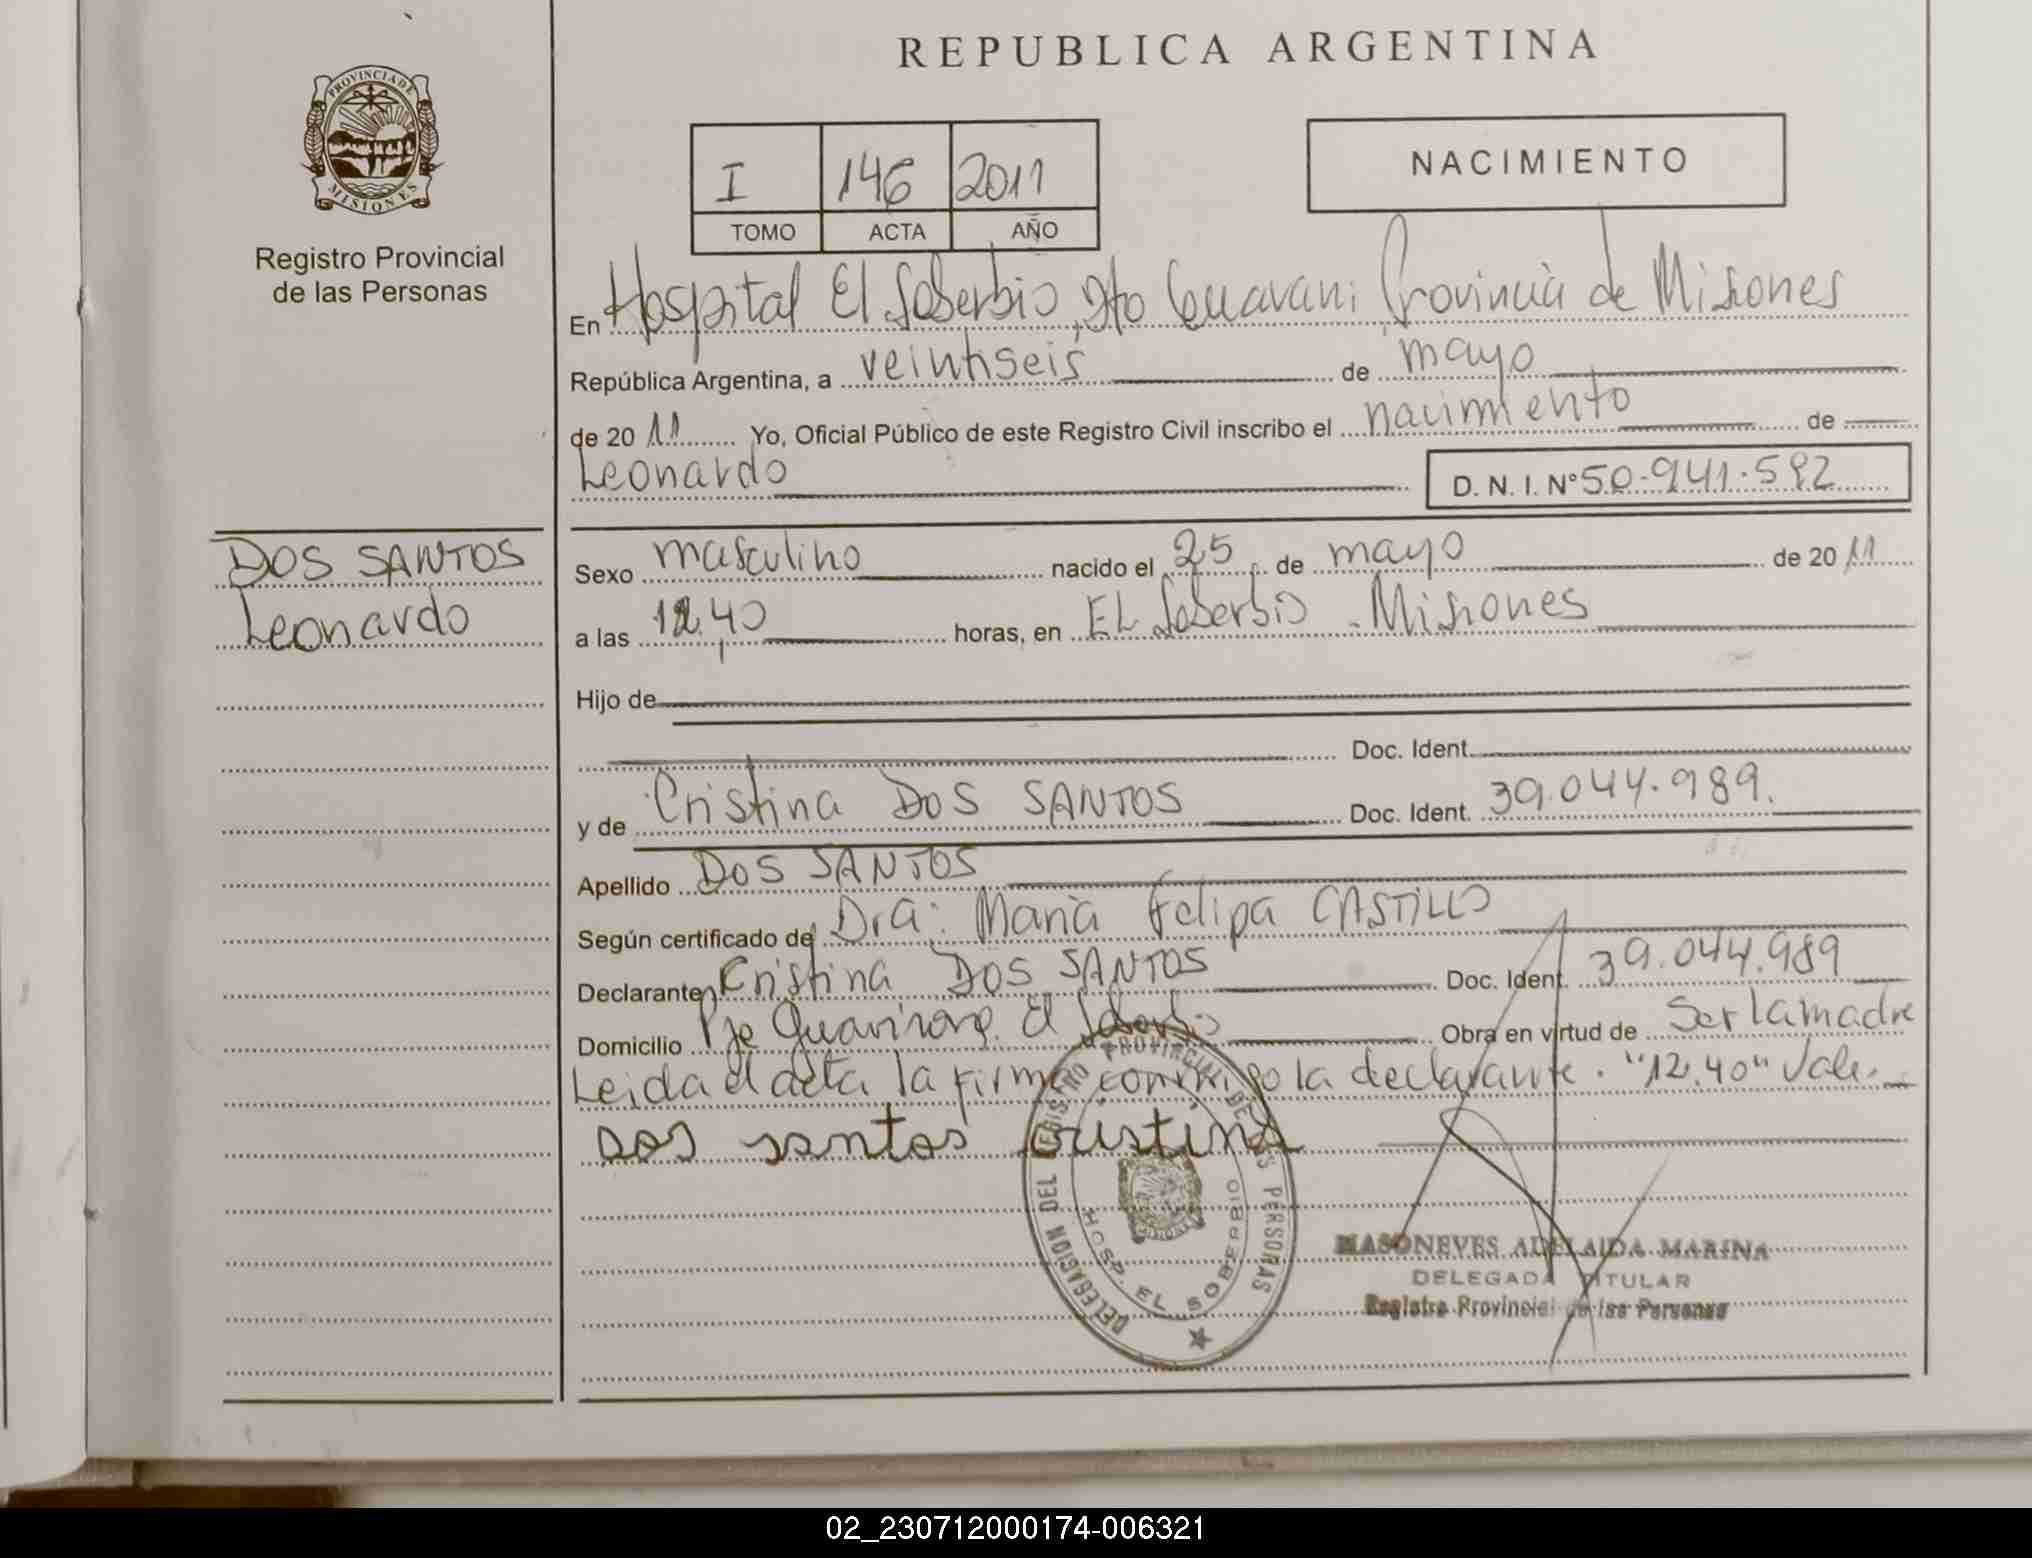 REPUBLICA ARGENTINA
PROVINCIA DE MISIONES
Registro Provincial
de las Personas
I 146 2011
TOMO ACTA AÑO
NACIMIENTO
En Hospital El Soberbio, Dto Guarani Provincia de Misiones
República Argentina, a veintiseis de mayo
de 20 11 Yo, Oficial Público de este Registro Civil inscribo el nacimiento de
Leonardo D. N. I. N° 50.941.592
DOS SANTOS
Leonardo
Sexo masculino nacido el 25 de mayo de 20 11
a las 12.40 horas, en EL Soberbio - Misiones
Hijo de
Doc. Ident.
y de Cristina DOS SANTOS Doc. Ident. 39.044.989.
Apellido DOS SANTOS
Según certificado de Dra: Maria Felipa CASTILLO
Declarante Cristina DOS SANTOS Doc. Ident. 39.044.989
Domicilio Pje El Soberbio Obra en virtud de Ser la madre
Leida el acta la firma conmigo la declarante. "12.40" Vale.
Dos santos Cristina
DELEGACION DEL REGISTRO PROVINCIAL DE LAS PERSONAS
HOSP. EL SOBERBIO
MISIONES
MASONEVES ADELAIDA MARINA
DELEGADA TITULAR
Registro Provincial de las Personas
02_230712000174-006321